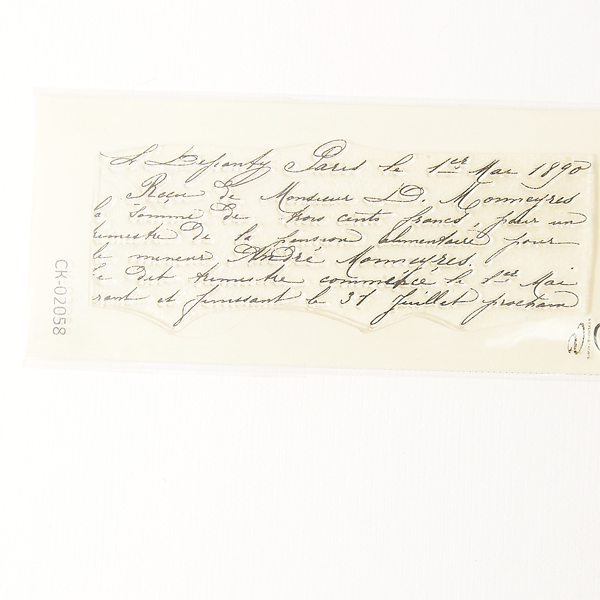 Paris le 1er Mai 1890
Reçu de Monsieur D. Monmeyres
la Somme de trois cents francs, pour un
trimestre de la pension alimentaire pour
le mineur André Monmeyres.
Le dit trimestre commencé le 1er Mai
rant et finissant le 31 Juillet prochain
CK-02058